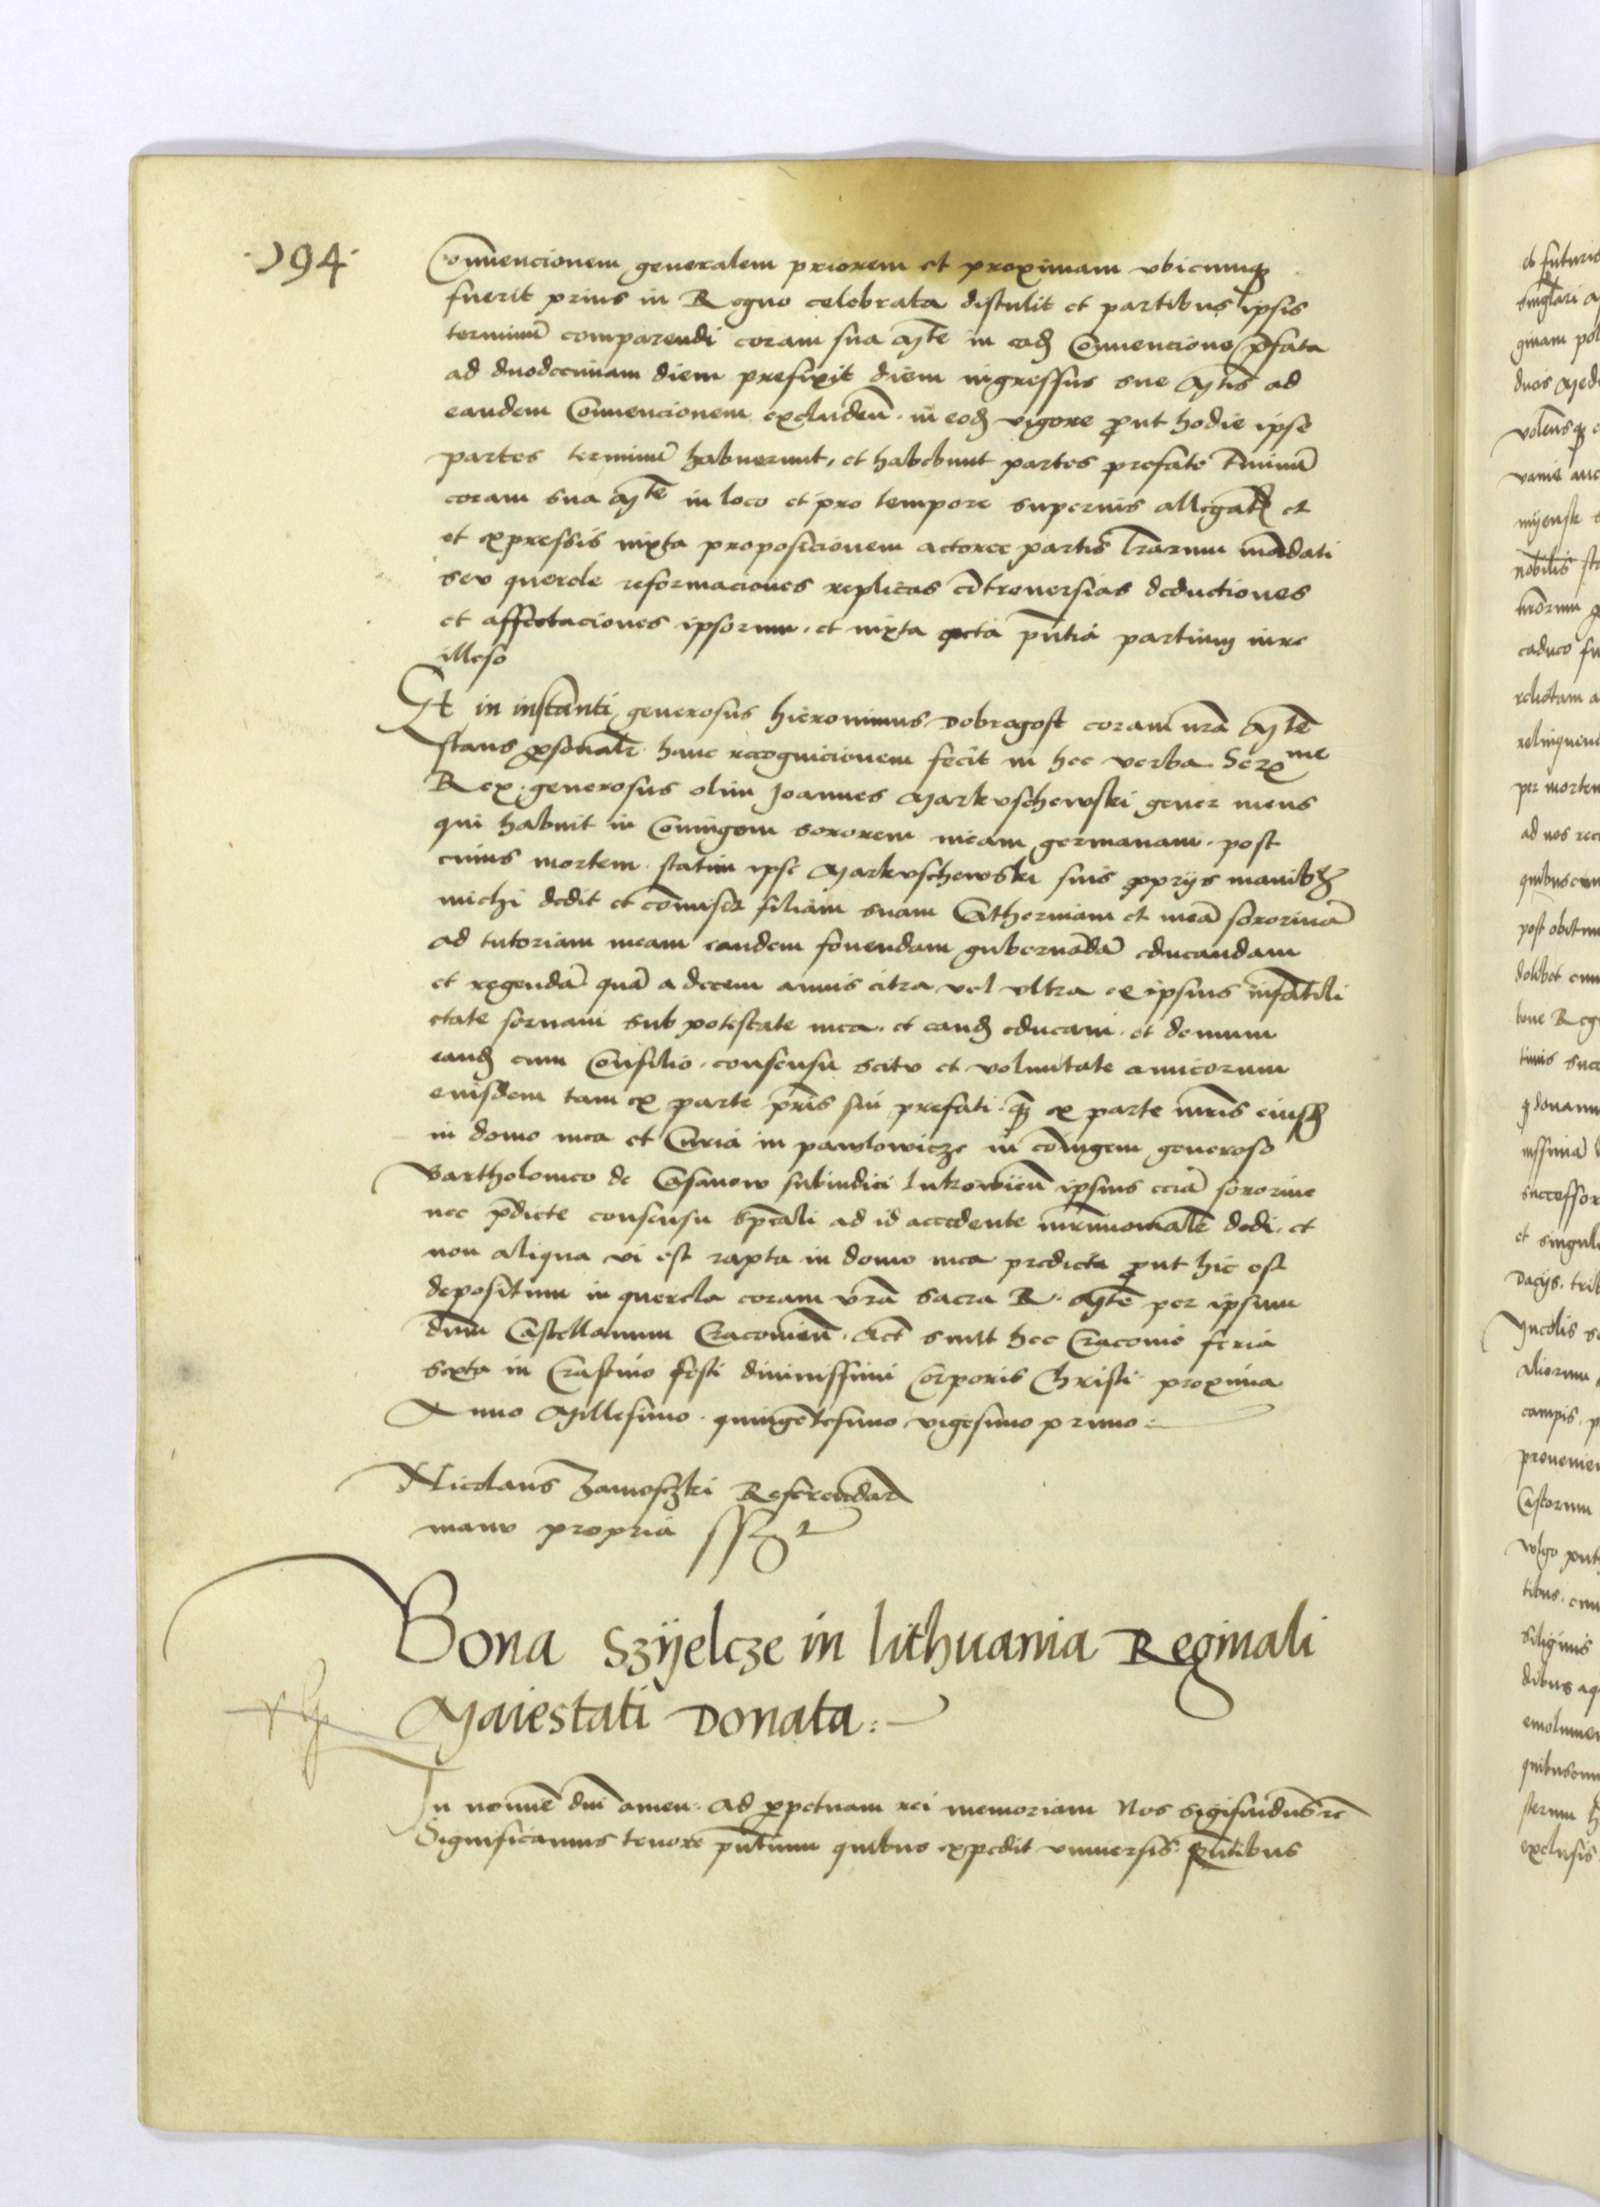 ·194·
Convencionem generalem priorem et proximam ubicumq
fuerit prius in Regno celebrata distulit et partibus ipsis
terminu comparendi coram sua Mte in eadem Convencione pfata
ad duodecimam diem prefixit diem ingressus sue Mtis ad
eandem Convencionem excluden. in eod vigore put hodie ipse
partes terminu habuerunt, et habebunt partes prefate Tminu
coram sua Mte in loco et pro tempore superius allegat et
et expressis iuxta proposicionem actoree partis lrarum madati
seu querele reformaciones replicas cotroversias deductiones
et affectaciones ipsorum. et iuxta acta pntia partium iure
illeso
Et in instanti generosus hieronimus Dobrogost coram nra Mte
stans psonalr. hanc recognicionem fecit in hec verba. Serme
Rex. generosus olim Joannes Markuschewski gener meus
qui habuit in Coniugem sororem meam germanam. post
cuius mortem. statim ipse Markuschewski suis pprijs manib
michi dedit et comisit filiam suam Catherinam et mea sororina
ad tutoriam meam eandem fovendam gubernada educandam
et regenda. qua a decem annis citra vel ultra ex ipsius infatili
etate servavi sub potestate mea. et eand educavi. et demum
eand cum Consilio. consensu scitu et voluntate amicorum
eiusdem tam ex parte pris sui prefati. q ex parte mris eiusd
in domo mea et Curia in pawlowicze in coiugem generoso
Bartholomeo de Casanow subiudici lukowien ipsius eciam sororine
mee pdicte consensu spcali ad id accedente mrimonialr dedi. et
non aliqua vi est rapta in domo mea predicta put hic est
depositum in querela coram vra sacra R. Mte per ipsum
dnm Castellanum Cracovien. Act sunt hec Cracovie feria
sexta in Crastino festi divinissimi Corporis Christi. proxima
Anno Millesimo. quingetesimo vigesimo primo.
Nicolaus Zamoszki Referendari
manu propria sszt
Bona Szyelcze in lithuania Reginali
Maiestati Donata:
In nomine dni amen. Ad ppetuam rei memoriam Nos Sigismudus rc
Significamus tenore pntium quibus expedit universis. pntibus